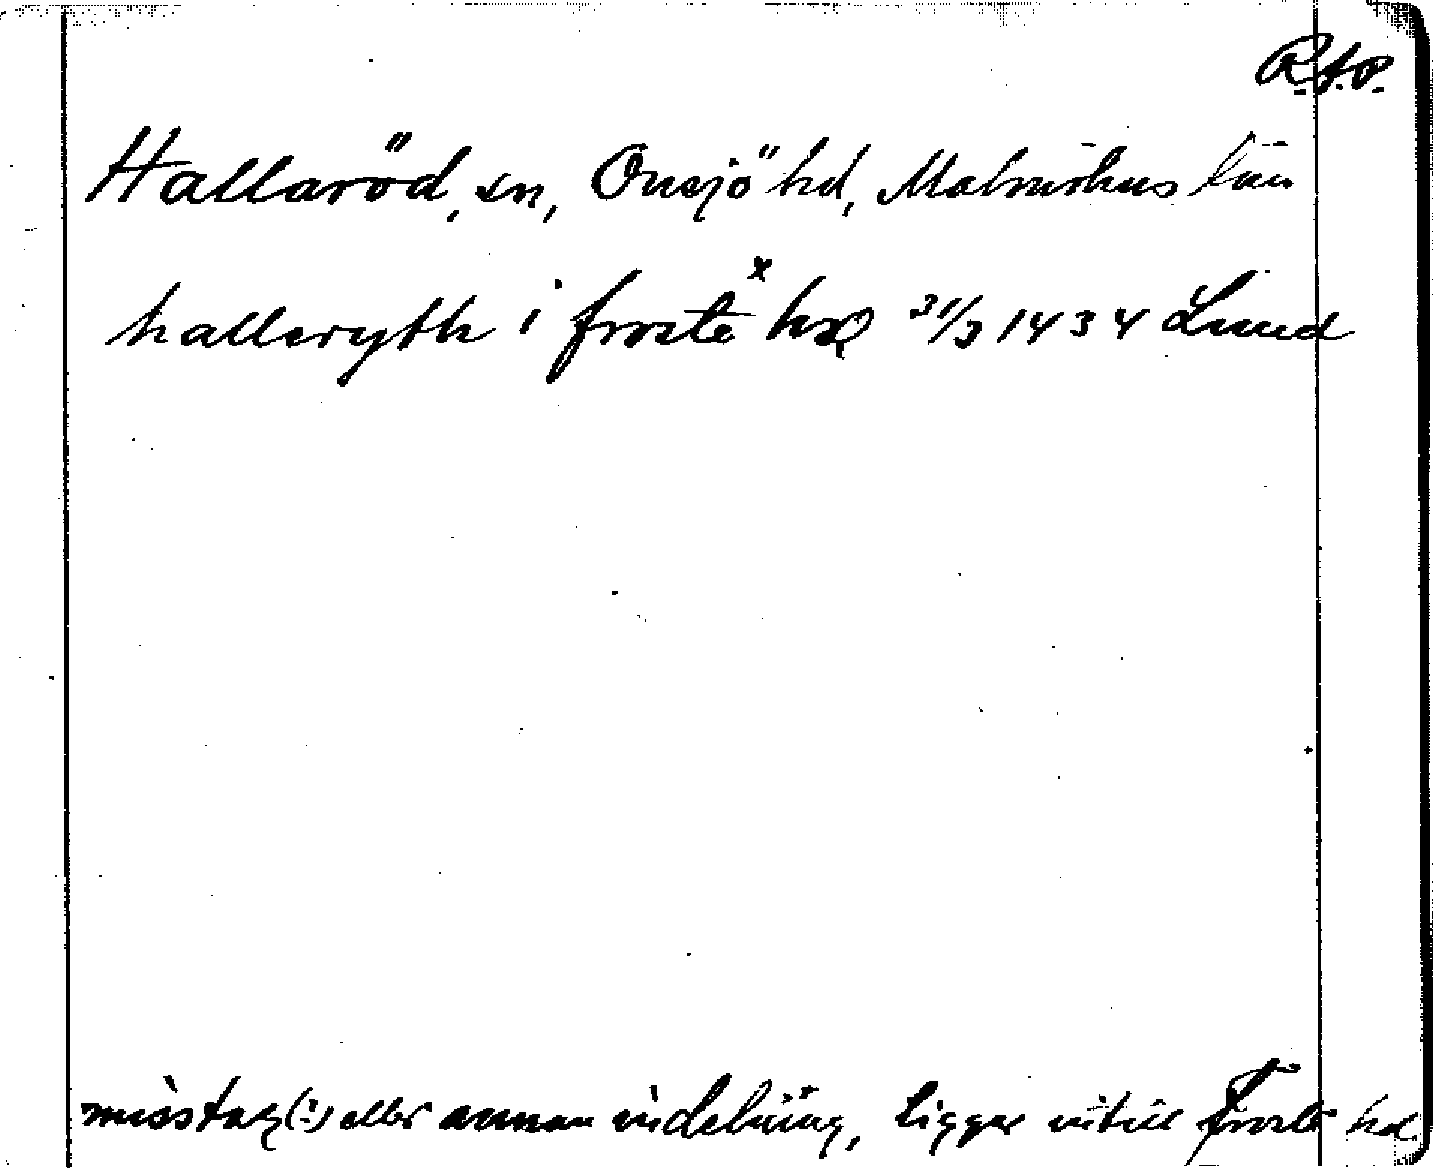 R.A.P.
Hallaröd, sn, Onsjö hd, Malmöhus län
halleryth i froste x hæ 31/3 1434 Lund
misstag(?) eller annan indelning, ligger intill Frosta hd.